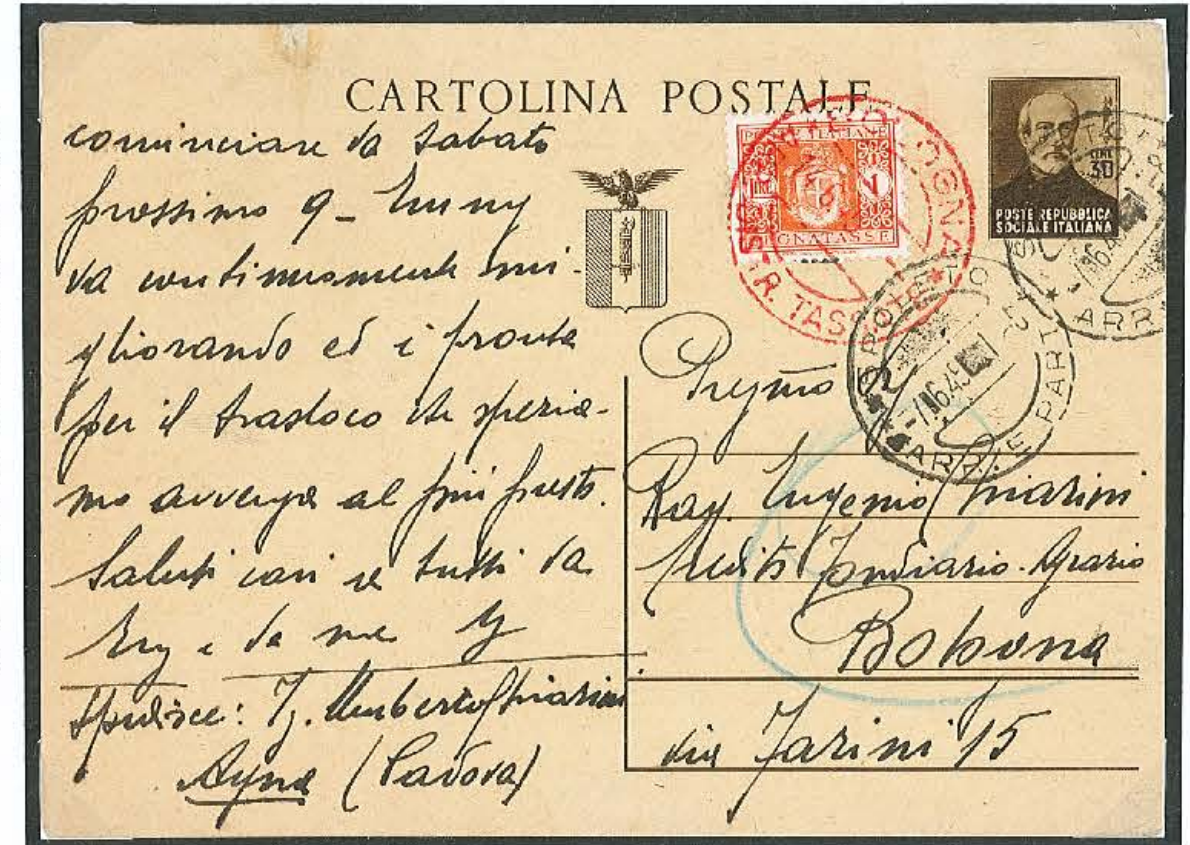 CARTOLINA POSTALE
cominciare da sabato
prossimo 9 - Emmy
va continuamente mi-
gliorando ed è pronta
per il trasloco che speria-
mo avvenga al più presto.
Saluti cari a tutti da
Emy e da me
Spedisce: Ig. Umberto Ghiarini
Agna (Padova)
POSTE ITALIANE
LIRE 1
SEGNATASSE
BOLOGNA
R. TASSE
LIRE
30
POSTE REPUBBLICA
SOCIALE ITALIANA
-7.6.45
ARR. E PART.
-7.6.45
ARR
Pregmo
Rag. Eugenio Ghiarini
Credito Fondiario - Agrario
Bologna
via Farini 15